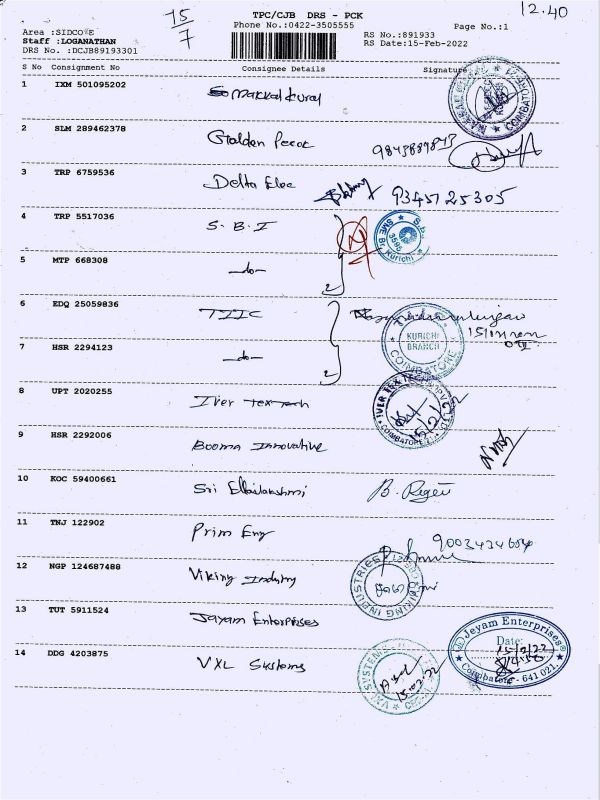 15/7
12.40
TPC/CJB DRS - PCK
Phone No.:0422-3505555
Page No.:1
Area :SIDCO E
Staff :LOGANATHAN
DRS No. :DCJB89193301
RS No.:891933
RS Date:15-Feb-2022
S No Consignment No Consignee Details Signature
1 IXM 501095202 Makkal Kural
2 SLM 289462378 Golden 9843889843
3 TRP 6759536 Delta Elec 9345125305
4 TRP 5517036 S.B.I
SME Br. Kurichi
5 MTP 668308 -do-
6 EDQ 25059836 TIIC
KURICHI BRANCH COIMBATORE
7 HSR 2294123 -do-
8 UPT 2020255 Iver Tex Tech
COIMBATORE
9 HSR 2292006 Booma Innovative
10 KOC 59400661 Sri
11 TNJ 122902 Prim Eng 9003434604
12 NGP 124687488 Viking Industry
VIKING INDUSTRIES
13 TUT 5911524 Jayam Enterprises
Jeyam Enterprises®
Date:
15/2/22
Coimbatore - 641 021.
14 DDG 4203875 VXL Systems
VXL SYSTEMS
15.02.22